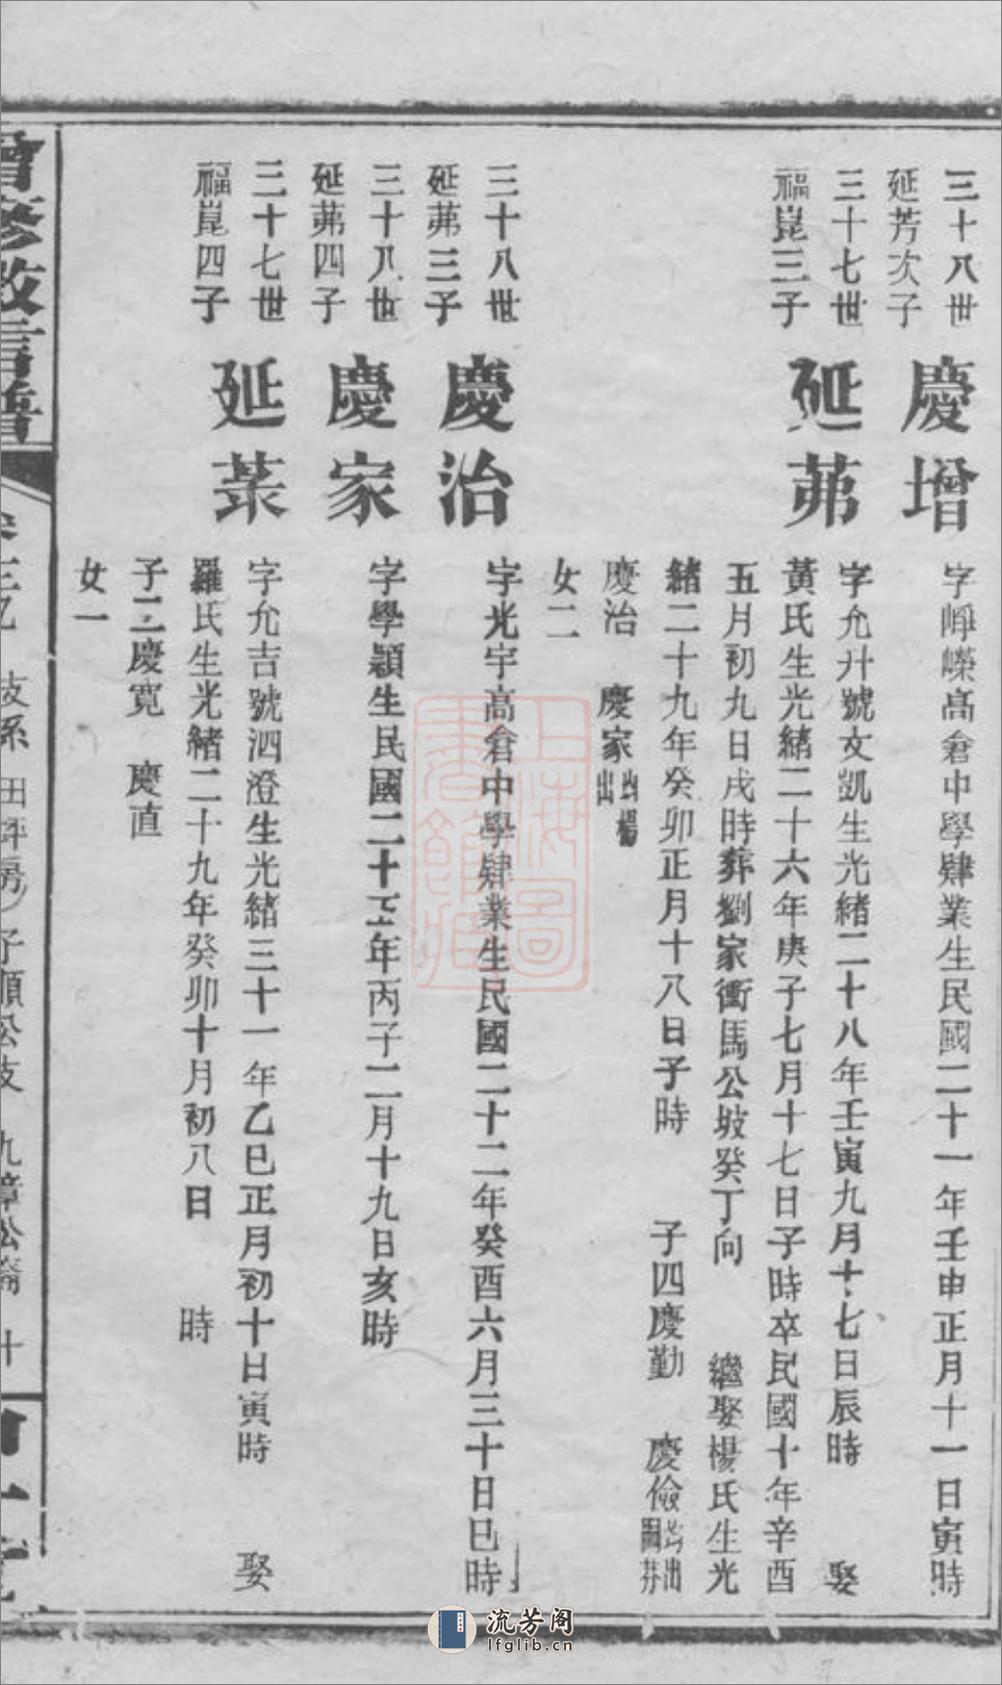 三十八世
延芳次子
慶增
字崢嶸高倉中學肄業生民國二十一年壬申正月十一日寅時
三十七世
福崑三子
延茀
字允升號文凱生光緒二十八年壬寅九月十七日辰時 娶
黃氏生光緒二十六年庚子七月十七日子時卒民國十年辛酉
五月初九日戌時葬劉家衝馬公坡癸丁向 繼娶楊氏生光
緒二十九年癸卯正月十八日子時 子四慶勤 慶儉
慶治 慶家出楊出
女二
三十八世
延茀三子
慶治
字光宇高倉中學肄業生民國二十二年癸酉六月三十日巳時
三十八世
延茀四子
慶家
字學穎生民國二十五年丙子二月十九日亥時
三十七世
福崑四子
延菉
字允吉號泗澄生光緒三十一年乙巳正月初十日寅時 娶
羅氏生光緒二十九年癸卯十月初八日 時
子二慶寬 慶直
女一
支系 田坪房 子順公支 九章公裔
上海圖書館藏
流芳阁
lfglib.cn